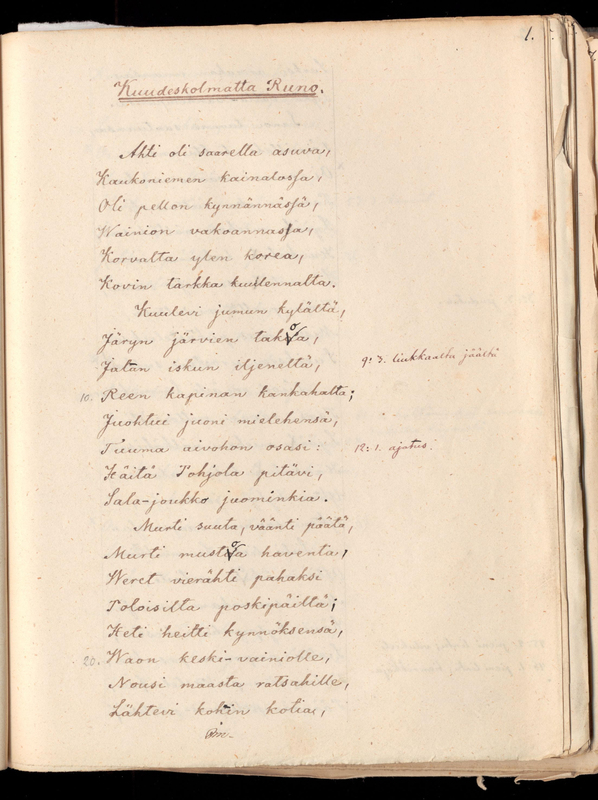 1.
Kuudeskolmatta Runo.
Ahti oli saarella asuva,
Kaukoniemen kainalossa,
Oli pellon kynnännässä,
Wainion vakoannassa,
Korvalta ylen korea,
Kovin tarkka kuulennalta.
Kuulevi jumun kylältä,
Järyn järvien takoa,
Jalan iskun iljeneltä, 9: 3. liukkaalta jäältä
10. Reen kapinan kankahalta;
Juohtui juoni mielehensä,
Tuuma aivohon osasi: 12: 1. ajatus.
Häitä Pohjola pitävi,
Sala-joukko juominkia.
Murti suuta, väänti päätä,
Murti mustoa haventa,
Weret vierähti pahaksi
Poloisilta poskipäiltä;
Heti heitti kynnöksensä,
20. Waon keski-vainiolle,
Nousi maasta ratsahille,
Lähtevi kohin kotia,